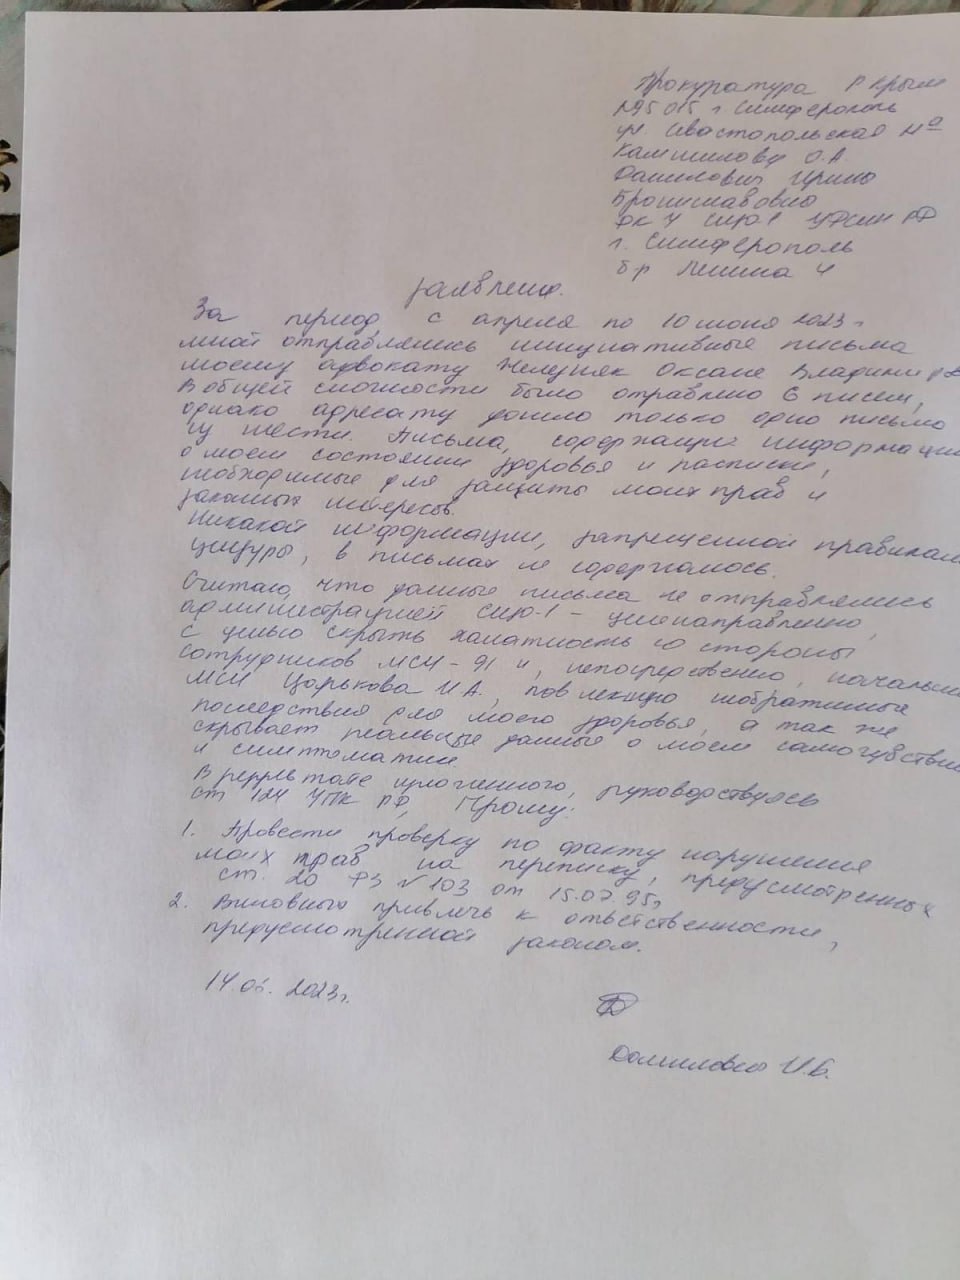 Прокуратура Р Крым
г. Симферополь
ул. Севастопольская
Камшилову О.А.
Данилович Ирина
Брониславовна
УФСИН РФ
г. Симферополь
б-р Ленина 4
Заявление.
За период с апреля по 10 июня 2023 г
мной отправлялись инициативные письма
моему адвокату Желтухе Оксане Владимиров
В общей сложности было отправлено 6 писем,
однако адресату дошло только одно письмо
из шести. Письма, содержащие информацию
о моем состоянии здоровья и расписки,
необходимые для защиты моих прав и
законных интересов.
Никакой информации, запрещенной правилами
цензуры, в письмах не содержалось.
Считаю, что данные письма не отправлялись
администрацией СИЗО-1 - целенаправленно,
с целью скрыть халатность со стороны
сотрудников МСЧ-91 и, непосредственно, начальника
МСЧ Царькова И.А., повлекшую необратимые
последствия для моего здоровья, а так же
скрывает реальные данные о моем самочувствии
и симптоматике.
В результате изложенного, руководствуясь
ст 124 УПК РФ, Прошу:
1. Провести проверку по факту нарушения
моих прав на переписку, предусмотренных
ст. 20 ФЗ №103 от 15.07.95г
2. Виновных привлечь к ответственности,
предусмотренной законом.
14.06.2023г.
Данилович И.Б.